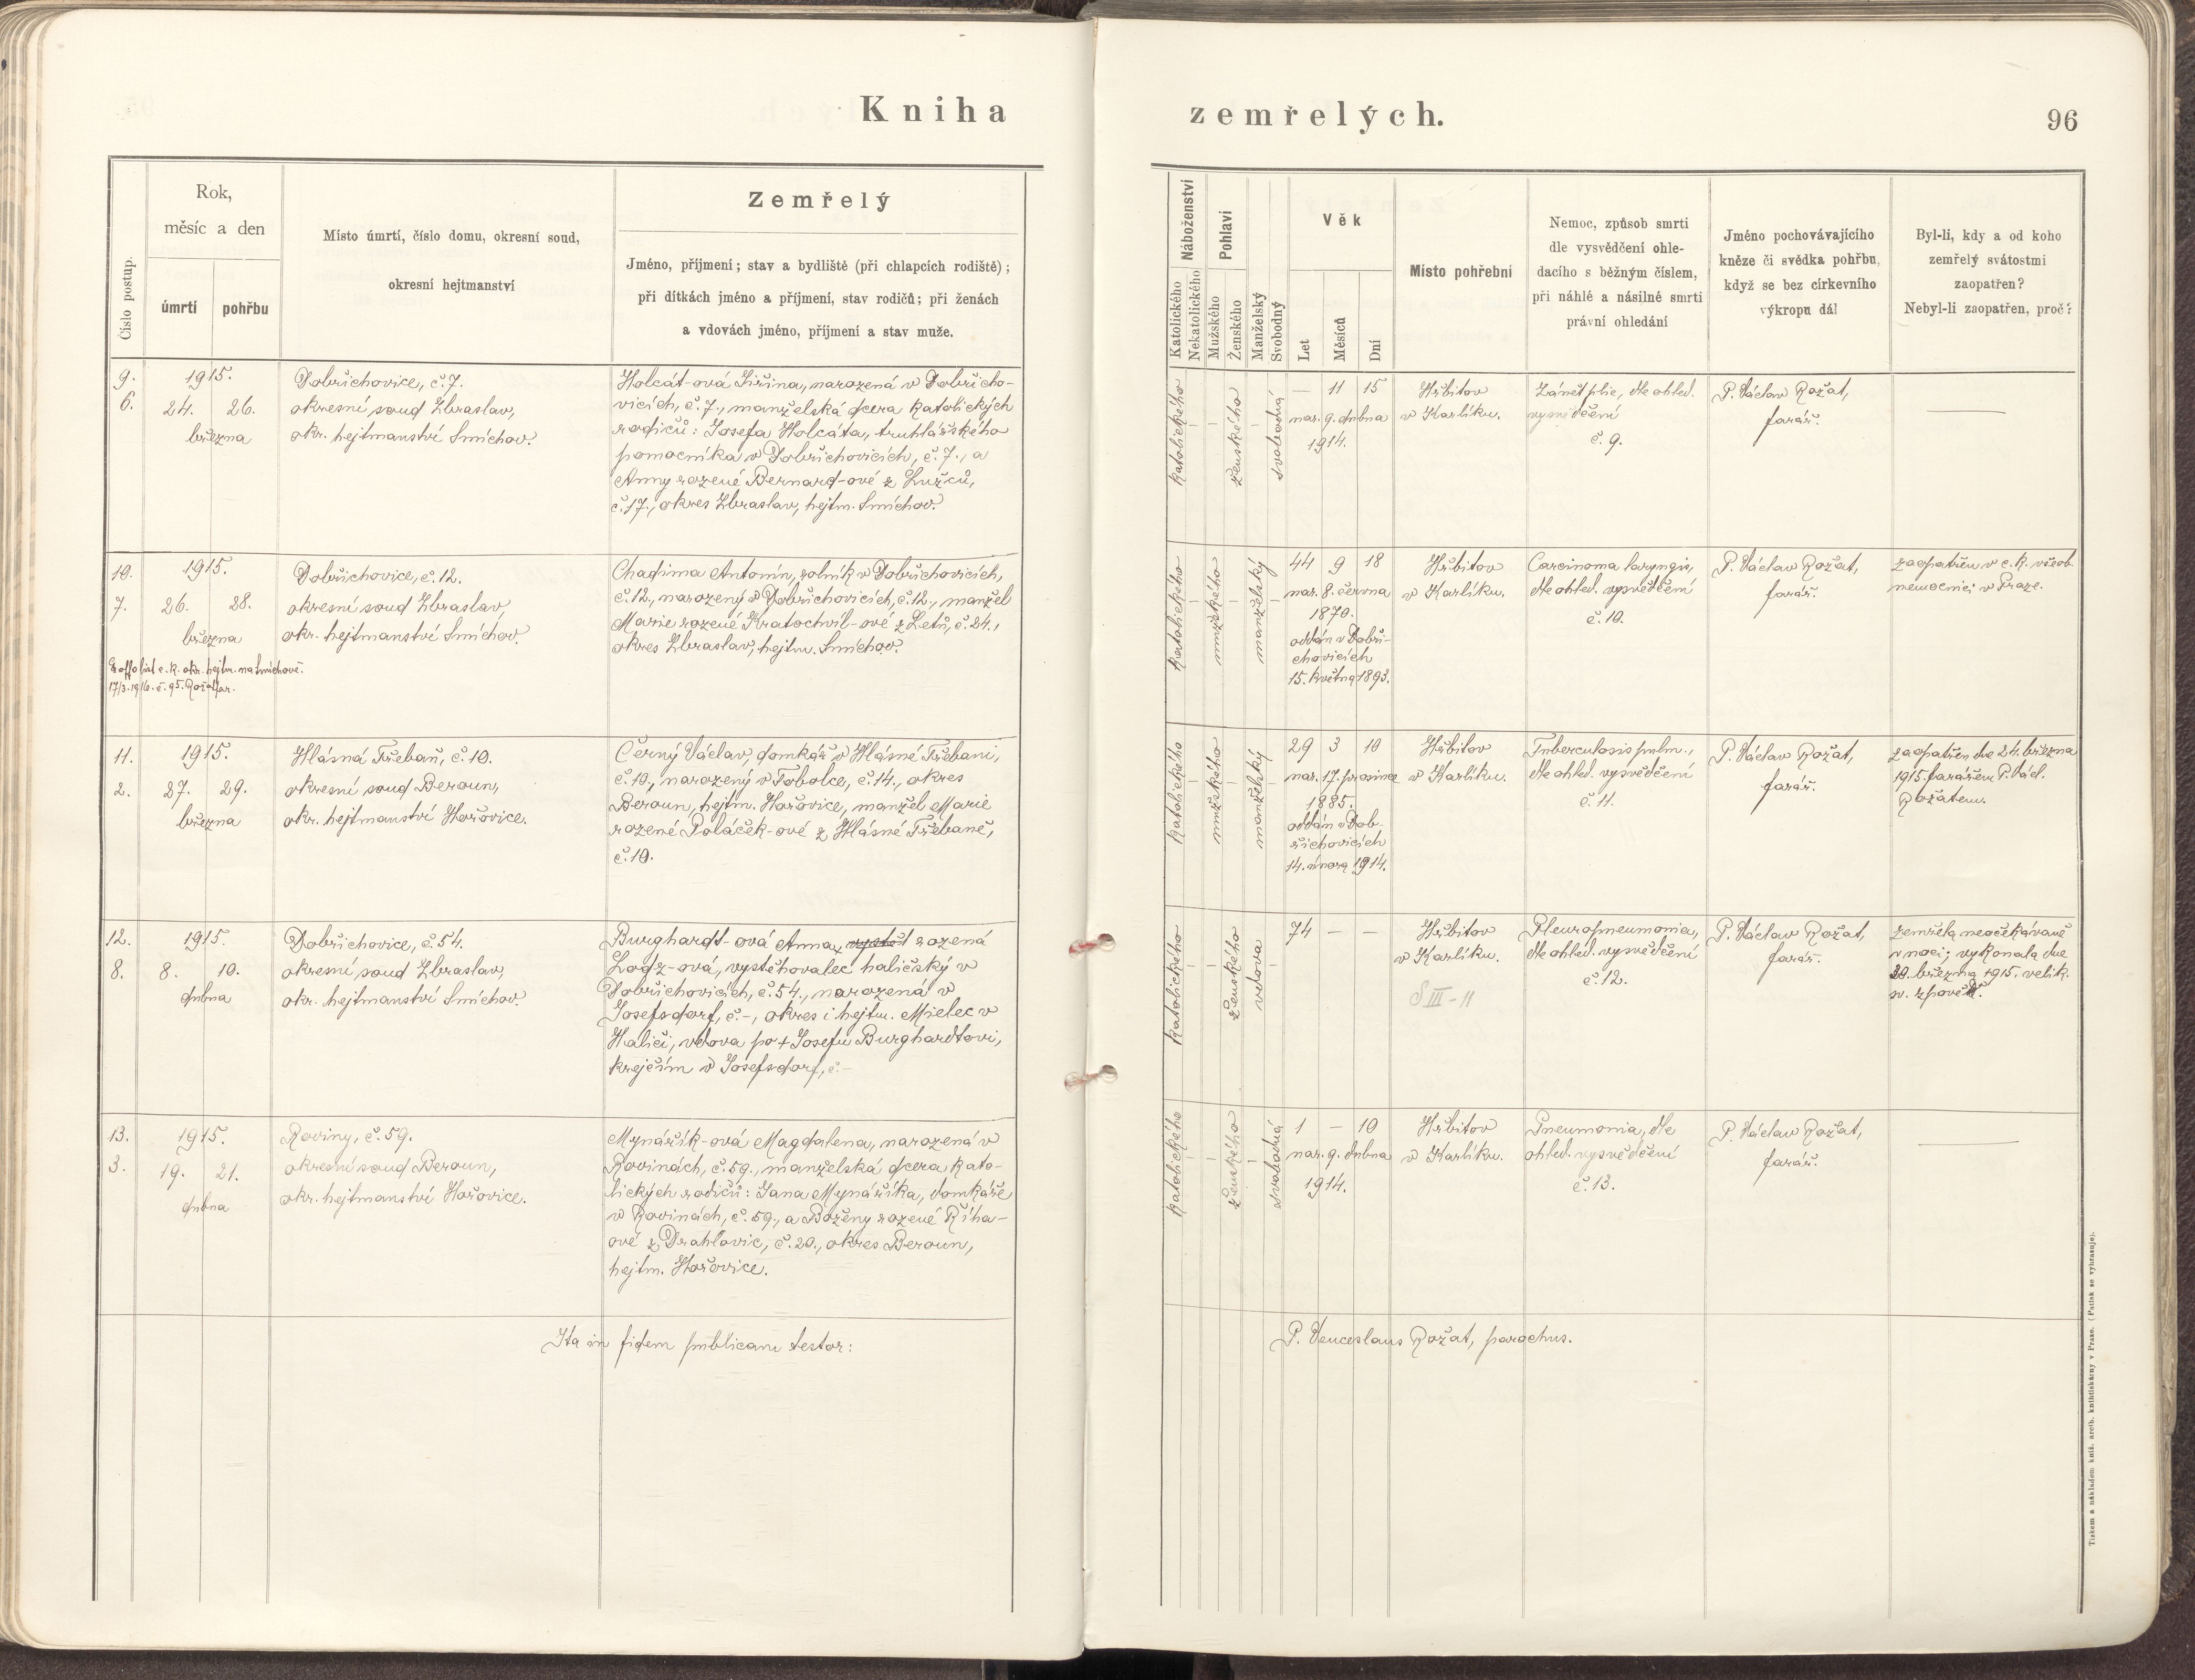 Kniha
zemřelých.
96
Číslo postup.
Rok,
měsíc a den
úmrtí
pohřbu
Místo úmrtí, číslo domu, okresní soud,
okresní hejtmanství
Zemřelý
Jméno, příjmení; stav a bydliště (při chlapcích rodiště);
při dítkách jméno a příjmení, stav rodičů; při ženách
a vdovách jméno, příjmení a stav muže.
Náboženství
Katolického
Nekatolického
Pohlaví
Mužského
Ženského
Manželský
Svobodný
Věk
Let
Měsíců
Dní
Místo pohřební
Nemoc, způsob smrti
dle vysvědčení ohle-
dacího s běžným číslem,
při náhlé a násilné smrti
právní ohledání
Jméno pochovávajícího
kněze či svědka pohřbu,
když se bez církevního
výkropu dál
Byl-li, kdy a od koho
zemřelý svátostmi
zaopatřen?
Nebyl-li zaopatřen, proč?
9.
6.
1915.
24. 26.
března
Dobřichovice, č. 7.
okresní soud Zbraslav,
okr. hejtmanství Smíchov.
Holcát-ová Jiřina, narozená v Dobřicho-
vicích, č. 7., manželská dcera katolických
rodičů: Josefa Holcáta, truhlářského
pomocníka v Dobřichovicích, č. 7., a
Anny rozené Bernard-ové z Lužců,
č. 17., okres Zbraslav, hejtm. Smíchov.
katolického
ženského
svobodná
— 11 15
nar. 9. dubna
1914.
Hřbitov
v Karlíku.
Zánět plic, dle ohled.
vysvědčení
č. 9.
P. Václav Rožat,
farář.
10.
7.
1915.
26. 28.
března
Ex offo list c. k. okr. hejtm. na Smíchově.
17/3. 1916. č. 95. Rožat far.
Dobřichovice, č. 12.
okresní soud Zbraslav,
okr. hejtmanství Smíchov.
Chadima Antonín, rolník v Dobřichovicích,
č. 12., narozený v Dobřichovicích, č. 12., manžel
Marie rozené Kratochvíl-ové z Letů, č. 24.,
okres Zbraslav, hejtm. Smíchov.
katolického
mužského
manželský
44 9 18
nar. 8. června
1870.
oddán v Dobři-
chovicích
15. května 1893.
Hřbitov
v Karlíku.
Carcinoma laryngis,
dle ohled. vysvědčení
č. 10.
P. Václav Rožat,
farář.
zaopatřen v c. k. všeob.
nemocnici v Praze.
11.
2.
1915.
27. 29.
března
Hlásná Třebaň, č. 10.
okresní soud Beroun,
okr. hejtmanství Hořovice.
Černý Václav, domkář v Hlásné Třebani,
č. 10., narozený v Tobolce, č. 14., okres
Beroun, hejtm. Hořovice, manžel Marie
rozené Poláček-ové z Hlásné Třebaně,
č. 10.
katolického
mužského
manželský
29 3 10
nar. 17. prosince
1885.
oddán v Dob-
řichovicích
14. února 1914.
Hřbitov
v Karlíku.
Tuberculosis pulm.,
dle ohled. vysvědčení
č. 11.
P. Václav Rožat,
farář.
zaopatřen dne 24. března
1915. farářem P. Václ.
Rožatem.
12.
8.
1915.
8. 10.
dubna
Dobřichovice, č. 54.
okresní soud Zbraslav,
okr. hejtmanství Smíchov.
Burghardt-ová Anna, vystěl rozená
Lodz-ová, vystěhovalec haličský v
Dobřichovicích, č. 54., narozená v
Josefsdorf, č. -, okres i hejtm. Mielec v
Haliči, vdova po + Josefu Burghardtovi,
krejčím v Josefsdorf, č. -
katolického
ženského
vdova
74 — —
Hřbitov
v Karlíku.
S III - 11
Pleuropneumonia,
dle ohled. vysvědčení
č. 12.
P. Václav Rožat,
farář.
zemřela neočekávaně
v noci; vykonala dne
20. března 1915. velik.
sv. zpověď.
13.
3.
1915.
19. 21.
dubna
Roviny, č. 59.
okresní soud Beroun,
okr. hejtmanství Hořovice.
Mynářík-ová Magdalena, narozená v
Rovinách, č. 59., manželská dcera kato-
lických rodičů: Jana Mynáříka, domkáře
v Rovinách, č. 59., a Boženy rozené Říha-
ové z Drahlovic, č. 20., okres Beroun,
hejtm. Hořovice.
katolického
ženského
svobodná
1 — 10
nar. 9. dubna
1914.
Hřbitov
v Karlíku.
Pneumonia, dle
ohled. vysvědčení
č. 13.
P. Václav Rožat,
farář.
Ita in fidem publicam testor:
P. Venceslaus Rožat, parochus.
Tiskem a nákladem kníž. arcib. knihtiskárny v Praze. (Patisk se vyhrazuje).